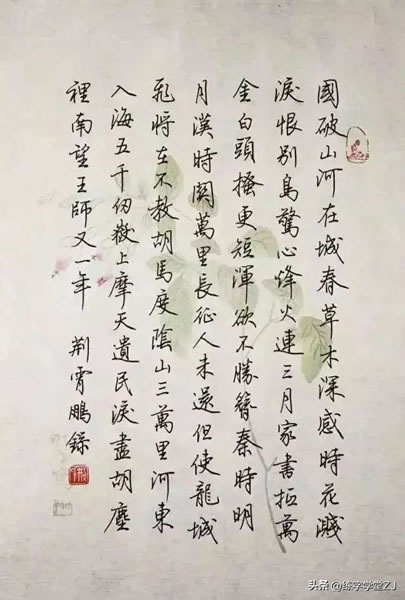 國破山河在城春草木深感時花濺
淚恨別鳥驚心烽火連三月家書抵萬
金白頭搔更短渾欲不勝簪秦時明
月漢時關萬里長征人未還但使龍城
飛將在不教胡馬度陰山三萬里河東
入海五千仞嶽上摩天遺民淚盡胡塵
裡南望王師又一年 荊霄鵬錄
头条 @练字学堂ZJ